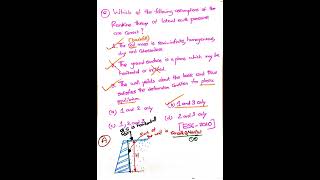 Q Which of the following assumptions of the
Rankine theory of lateral earth pressure
are correct?
(backfill)
1. The soil mass is semi-infinite, homogeneous,
dry and cohesionless
2. The ground surface is a plane which may be
horizontal or inclined
3. The wall yields about the base and thus
satisfies the deformation condition for plastic
equilibrium
(a) 1 and 2 only
(b) 1 and 3 only
(c) 1, 2 and 3
(d) 2 and 3 only
[ESE-2020]
A
G.S is horizontal
of the wall is
∞